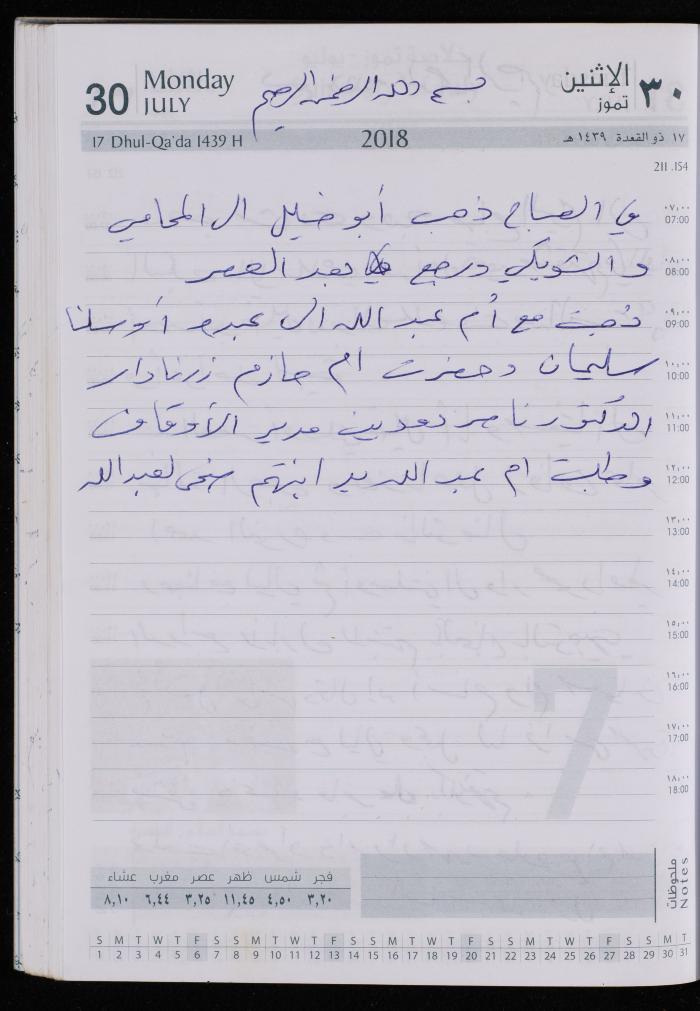 30 Monday JULY بسم الله الرحمن الرحيم الإثنين تموز ٣٠
17 Dhul-Qa'da 1439 H 2018 ١٧ ذو القعدة ١٤٣٩ هـ
211 .154
في الصباح ذهب أبو خليل ال المحامي ٠٧,٠٠ 07:00
و الشويكي ورجع بعد العصر ٠٨,٠٠ 08:00
ذهبت مع أم عبد الله ال عبده أوسلنا ٠٩,٠٠ 09:00
سليمان وحضرت ام حازم زرنا دار ١٠,٠٠ 10:00
الدكتور ناصر مدير الأوقاف ١١,٠٠ 11:00
وطلبت ام عبد الله يد ابنتهم لعبدالله ١٢,٠٠ 12:00
١٣,٠٠ 13:00
١٤,٠٠ 14:00
١٥,٠٠ 15:00
١٦,٠٠ 16:00
١٧,٠٠ 17:00
١٨,٠٠ 18:00
7
فجر شمس ظهر عصر مغرب عشاء
٣,٢٠ ٤,٥٠ ١١,٤٥ ٣,٢٥ ٦,٤٤ ٨,١٠
ملحوظات
Notes
S M T W T F S S M T W T F S S M T W T F S S M T W T F S S M T
1 2 3 4 5 6 7 8 9 10 11 12 13 14 15 16 17 18 19 20 21 22 23 24 25 26 27 28 29 30 31